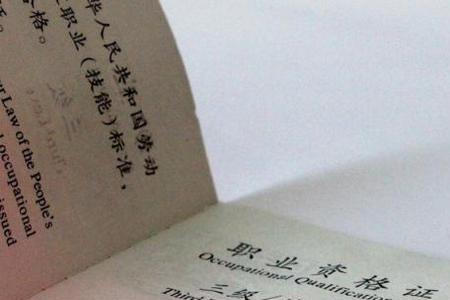 华人民共和国劳动
职业(技能)标准，
格。
Law of the People's
occupational
issued
职业资格证
Occupational Qualification
三级/
Third